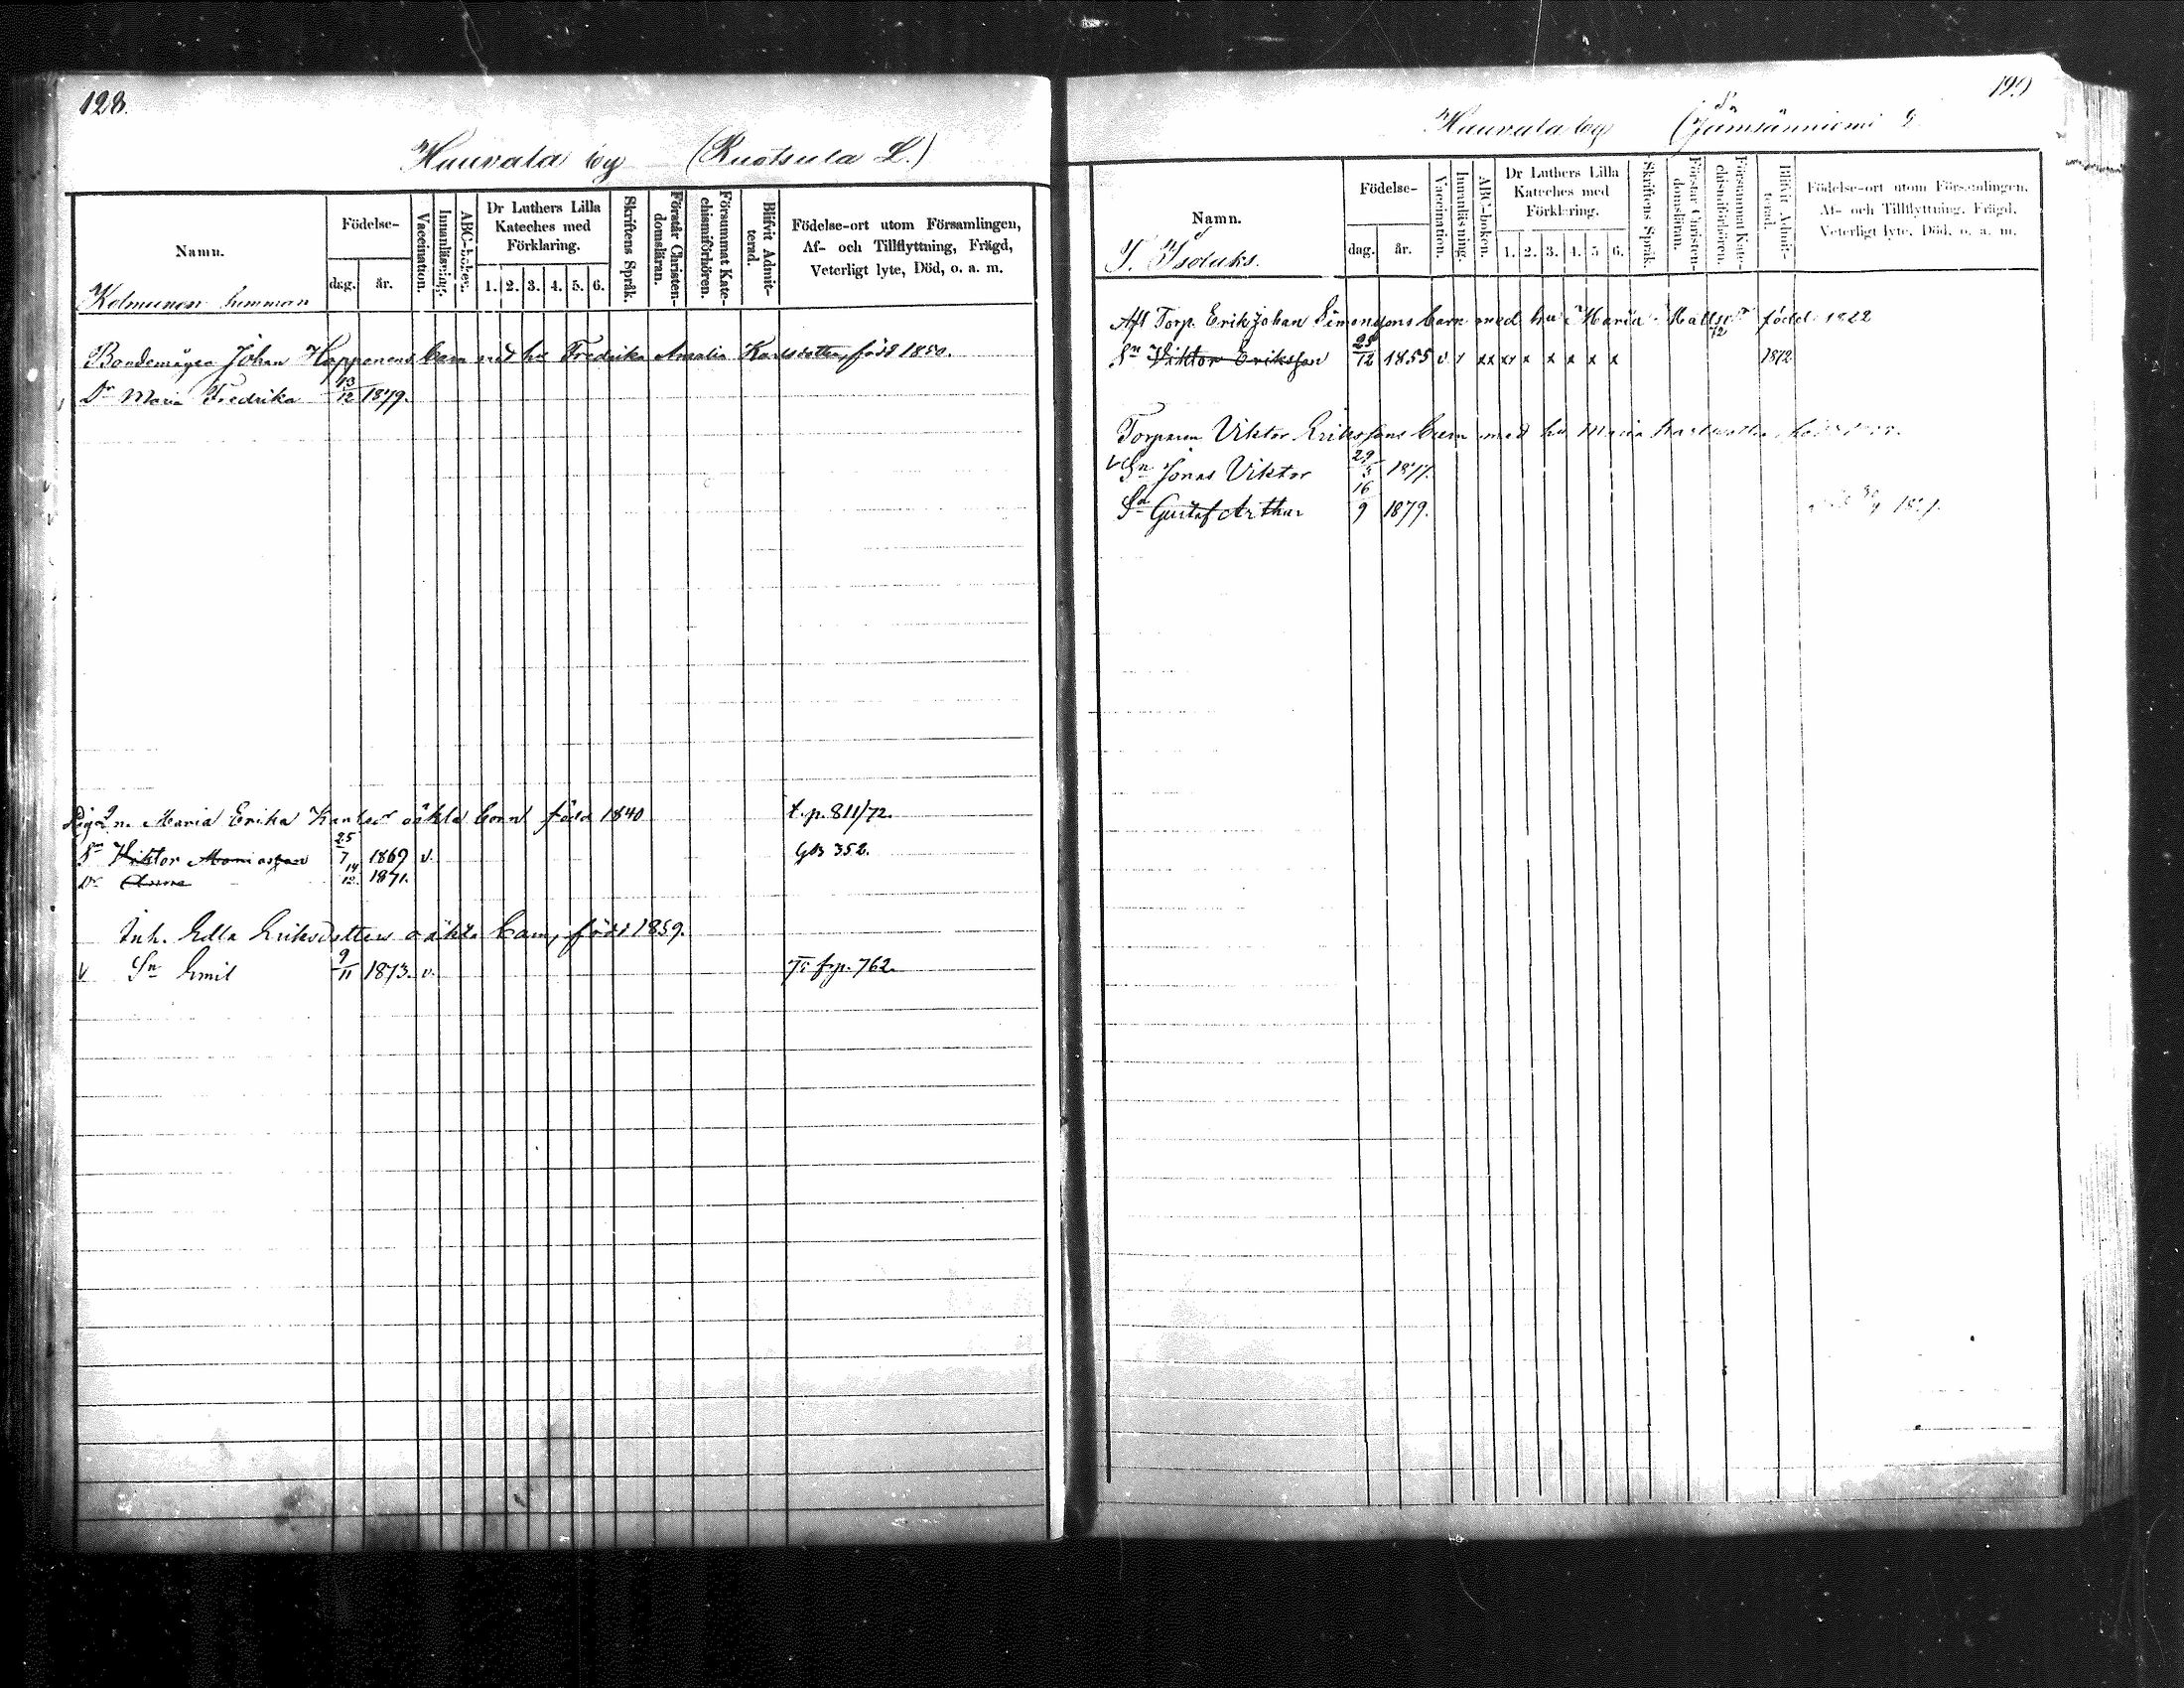 128.
Huuvala by (Ruotsula L.)
Namn.
Födelse-
dag. år.
Vaccination.
Innanläsning.
ABC-boken.
Dr Luthers Lilla Kateches med Förklaring.
1. 2. 3. 4. 5. 6.
Skriftens Språk.
Förstår Christendomsläran.
Försummat Katechismiförhören.
Blifvit Admitterad.
Födelse-ort utom Församlingen, Af- och Tillflyttning, Frägd, Veterligt lyte, Död, o. a. m.
Kolmunen hemman
Bondemågen Johan Happonens barn med hu Fredrika Amalia Karlsdotter, född 1850.
Dr Maria Fredrika 13/12 1879.
Pigan Maria Erika Karlsdr oäkta barn född 1840 t. p. 811/72.
Sn Viktor 25/7 1869 v. GB 352.
Dr Anna 14/12 1871.
Inh. Edla Eriksdotters oäkta barn, född 1859.
v Sn Emil 9/11 1873. v. fr p. 762.
129
Huuvala by (Jämsänniemi
Namn.
Födelse-
dag. år.
Vaccination.
Innanläsning.
ABC-boken.
Dr Luthers Lilla Kateches med Förklaring.
1. 2. 3. 4. 5 6.
Skriftens Språk.
Förstår Christendomsläran.
Försummat Katechismiförhören.
Blifvit Admitterad.
Födelse-ort utom Församlingen, Af- och Tillflyttning, Frägd, Veterligt lyte, Död, o. a. m.
Afl Torp. Erik Johan Simonssons barn med hu Maria Mattsdr född 1822
Sn Viktor Eriksson 25/12 1855 v x xx xx x x x x x 72 1872
Torparen Viktor Erikssons barn med hu Maria
v Sn Jonas Viktor 29/5 1877.
Sn Gustaf Arthur 16/9 1879.